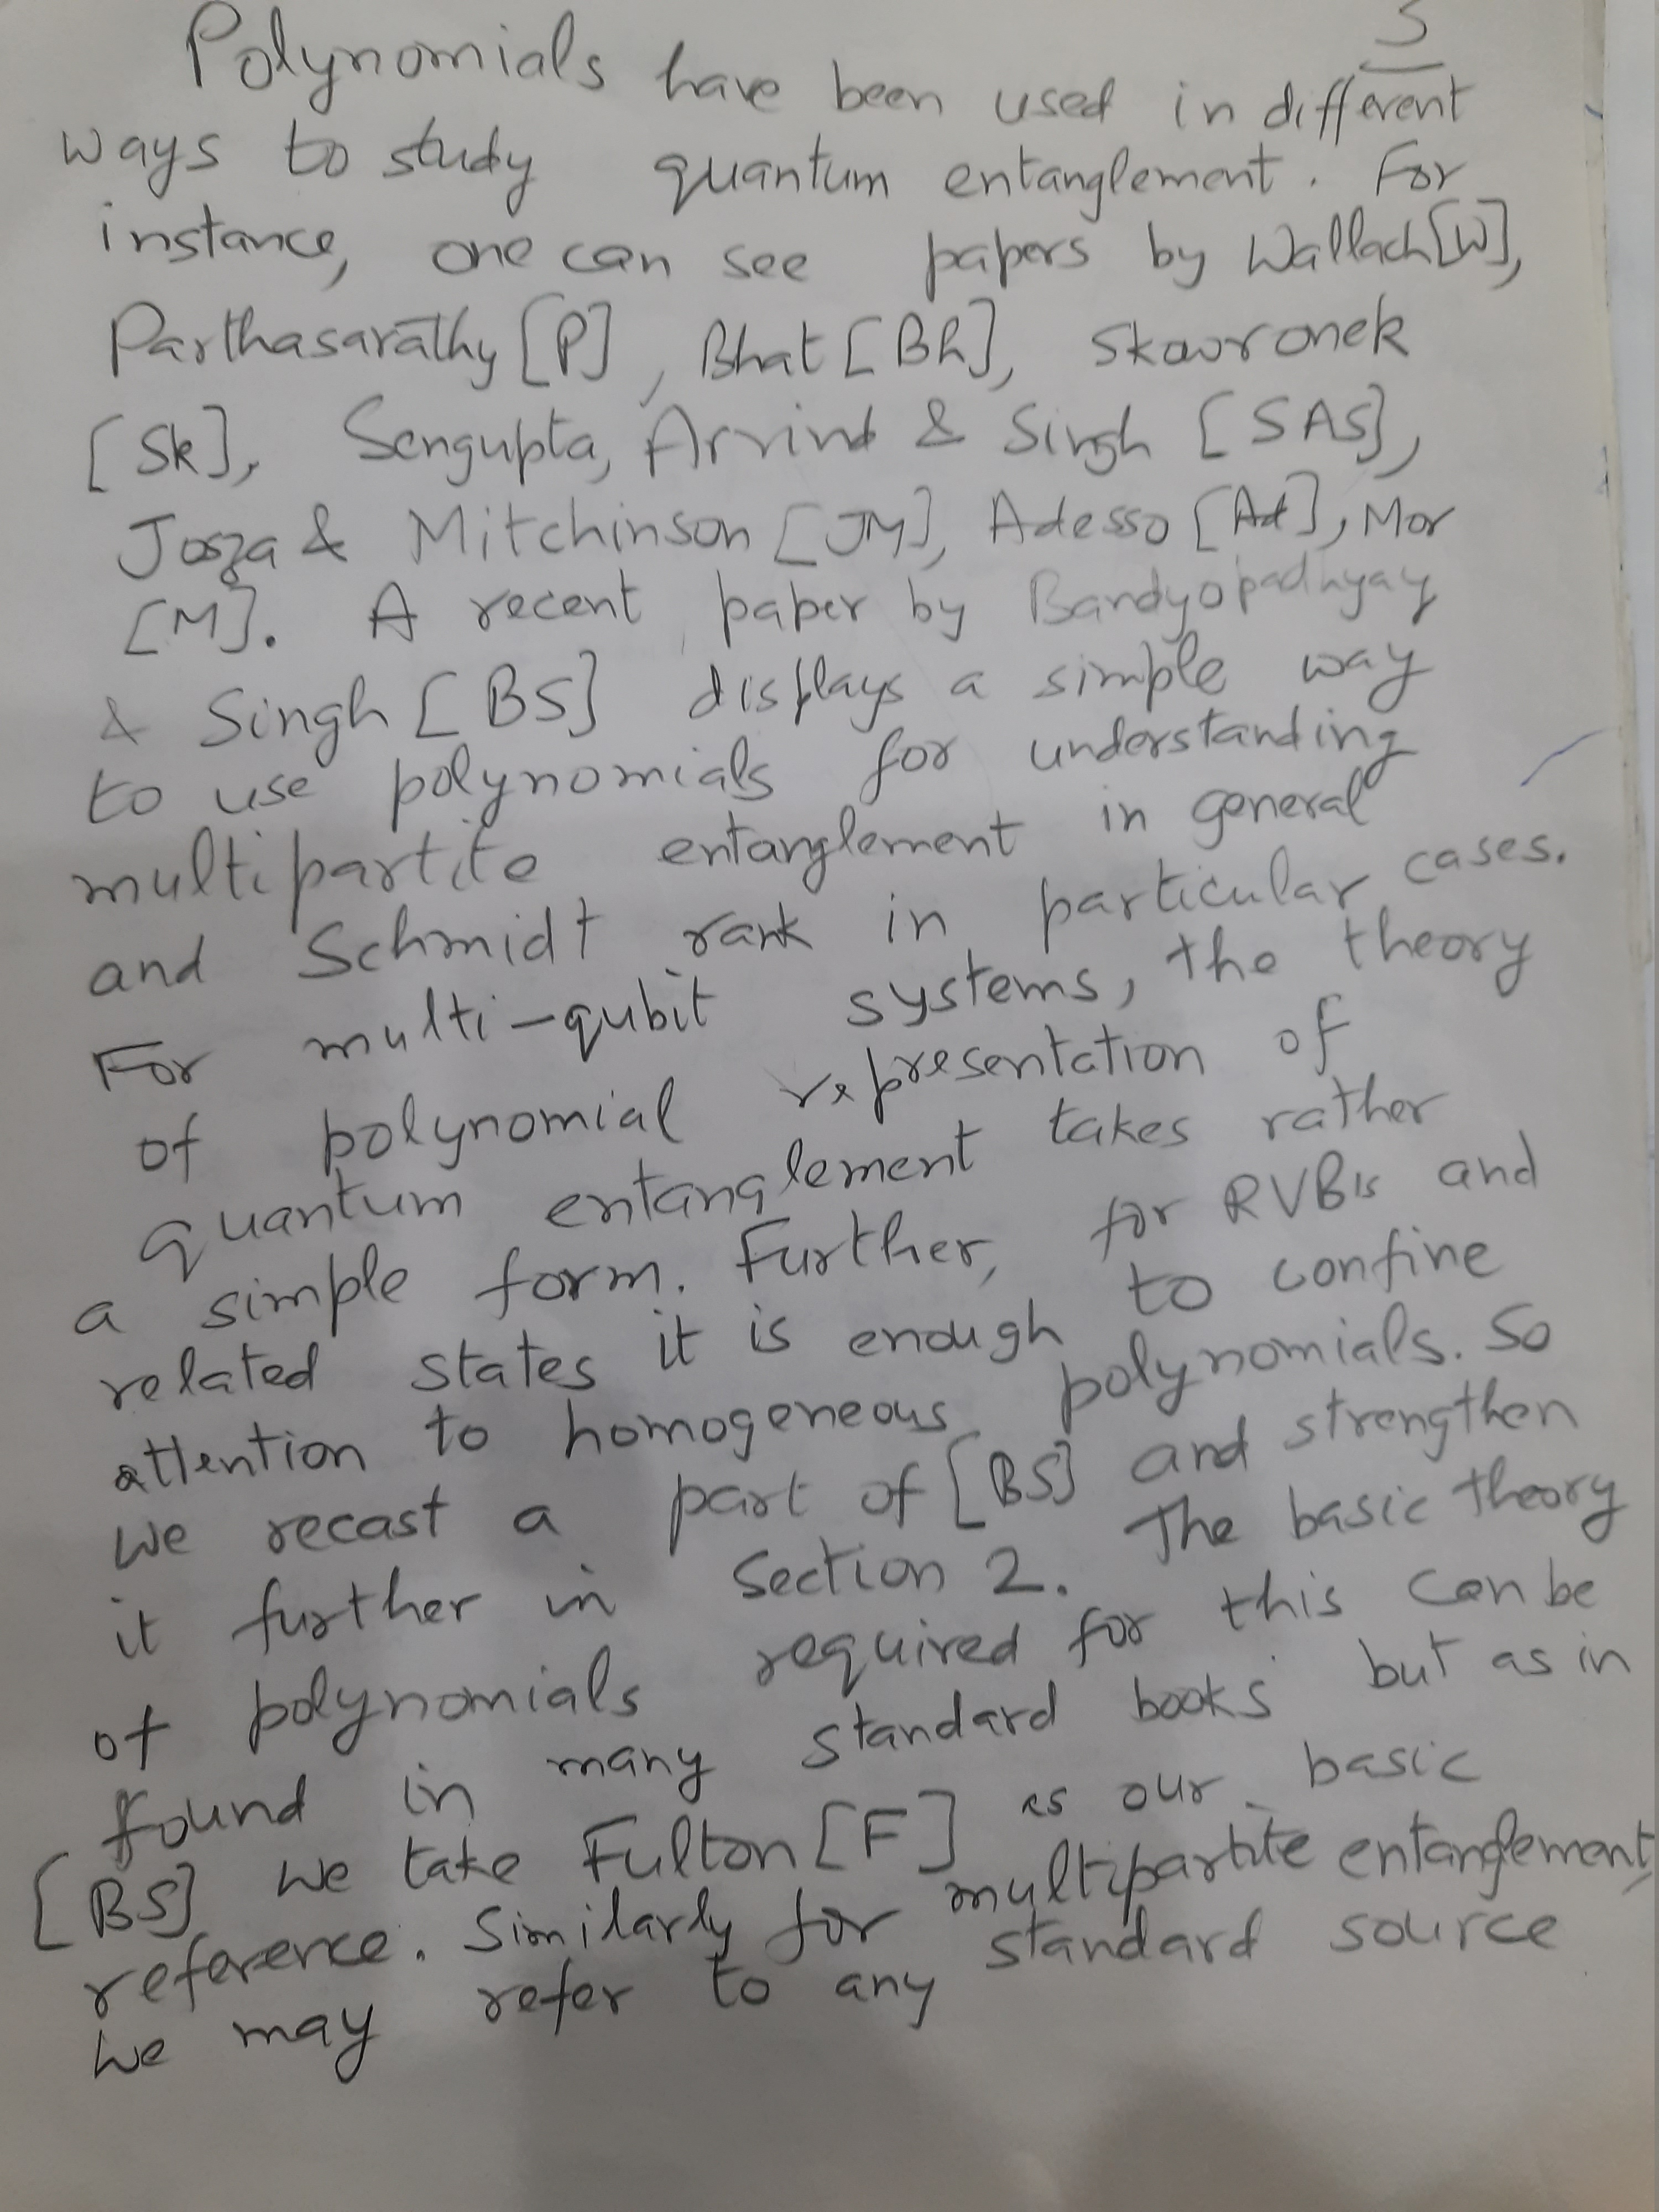 5
Polynomials have been used in different
ways to study quantum entanglement. For
instance, one can see papers by Wallach [W],
Parthasarathy [P], Bhat [Bh], Skowronek
[Sk], Sengupta, Arvind & Singh [SAS],
Josza & Mitchinson [JM], Adesso [Ad], Mor
[M]. A recent paper by Bandyopadhyay
& Singh [BS] displays a simple way
to use polynomials for understanding
multipartite entanglement in general
and Schmidt rank in particular cases.
For multi-qubit systems, the theory
of polynomial representation of
quantum entanglement takes rather
a simple form. Further, for RVB's and
related states it is enough to confine
attention to homogeneous polynomials. So
we recast a part of [BS] and strengthen
it further in Section 2. The basic theory
of polynomials required for this can be
found in many standard books but as in
[BS] we take Fulton [F] as our basic
reference. Similarly for multipartite entanglement,
we may refer to any standard source